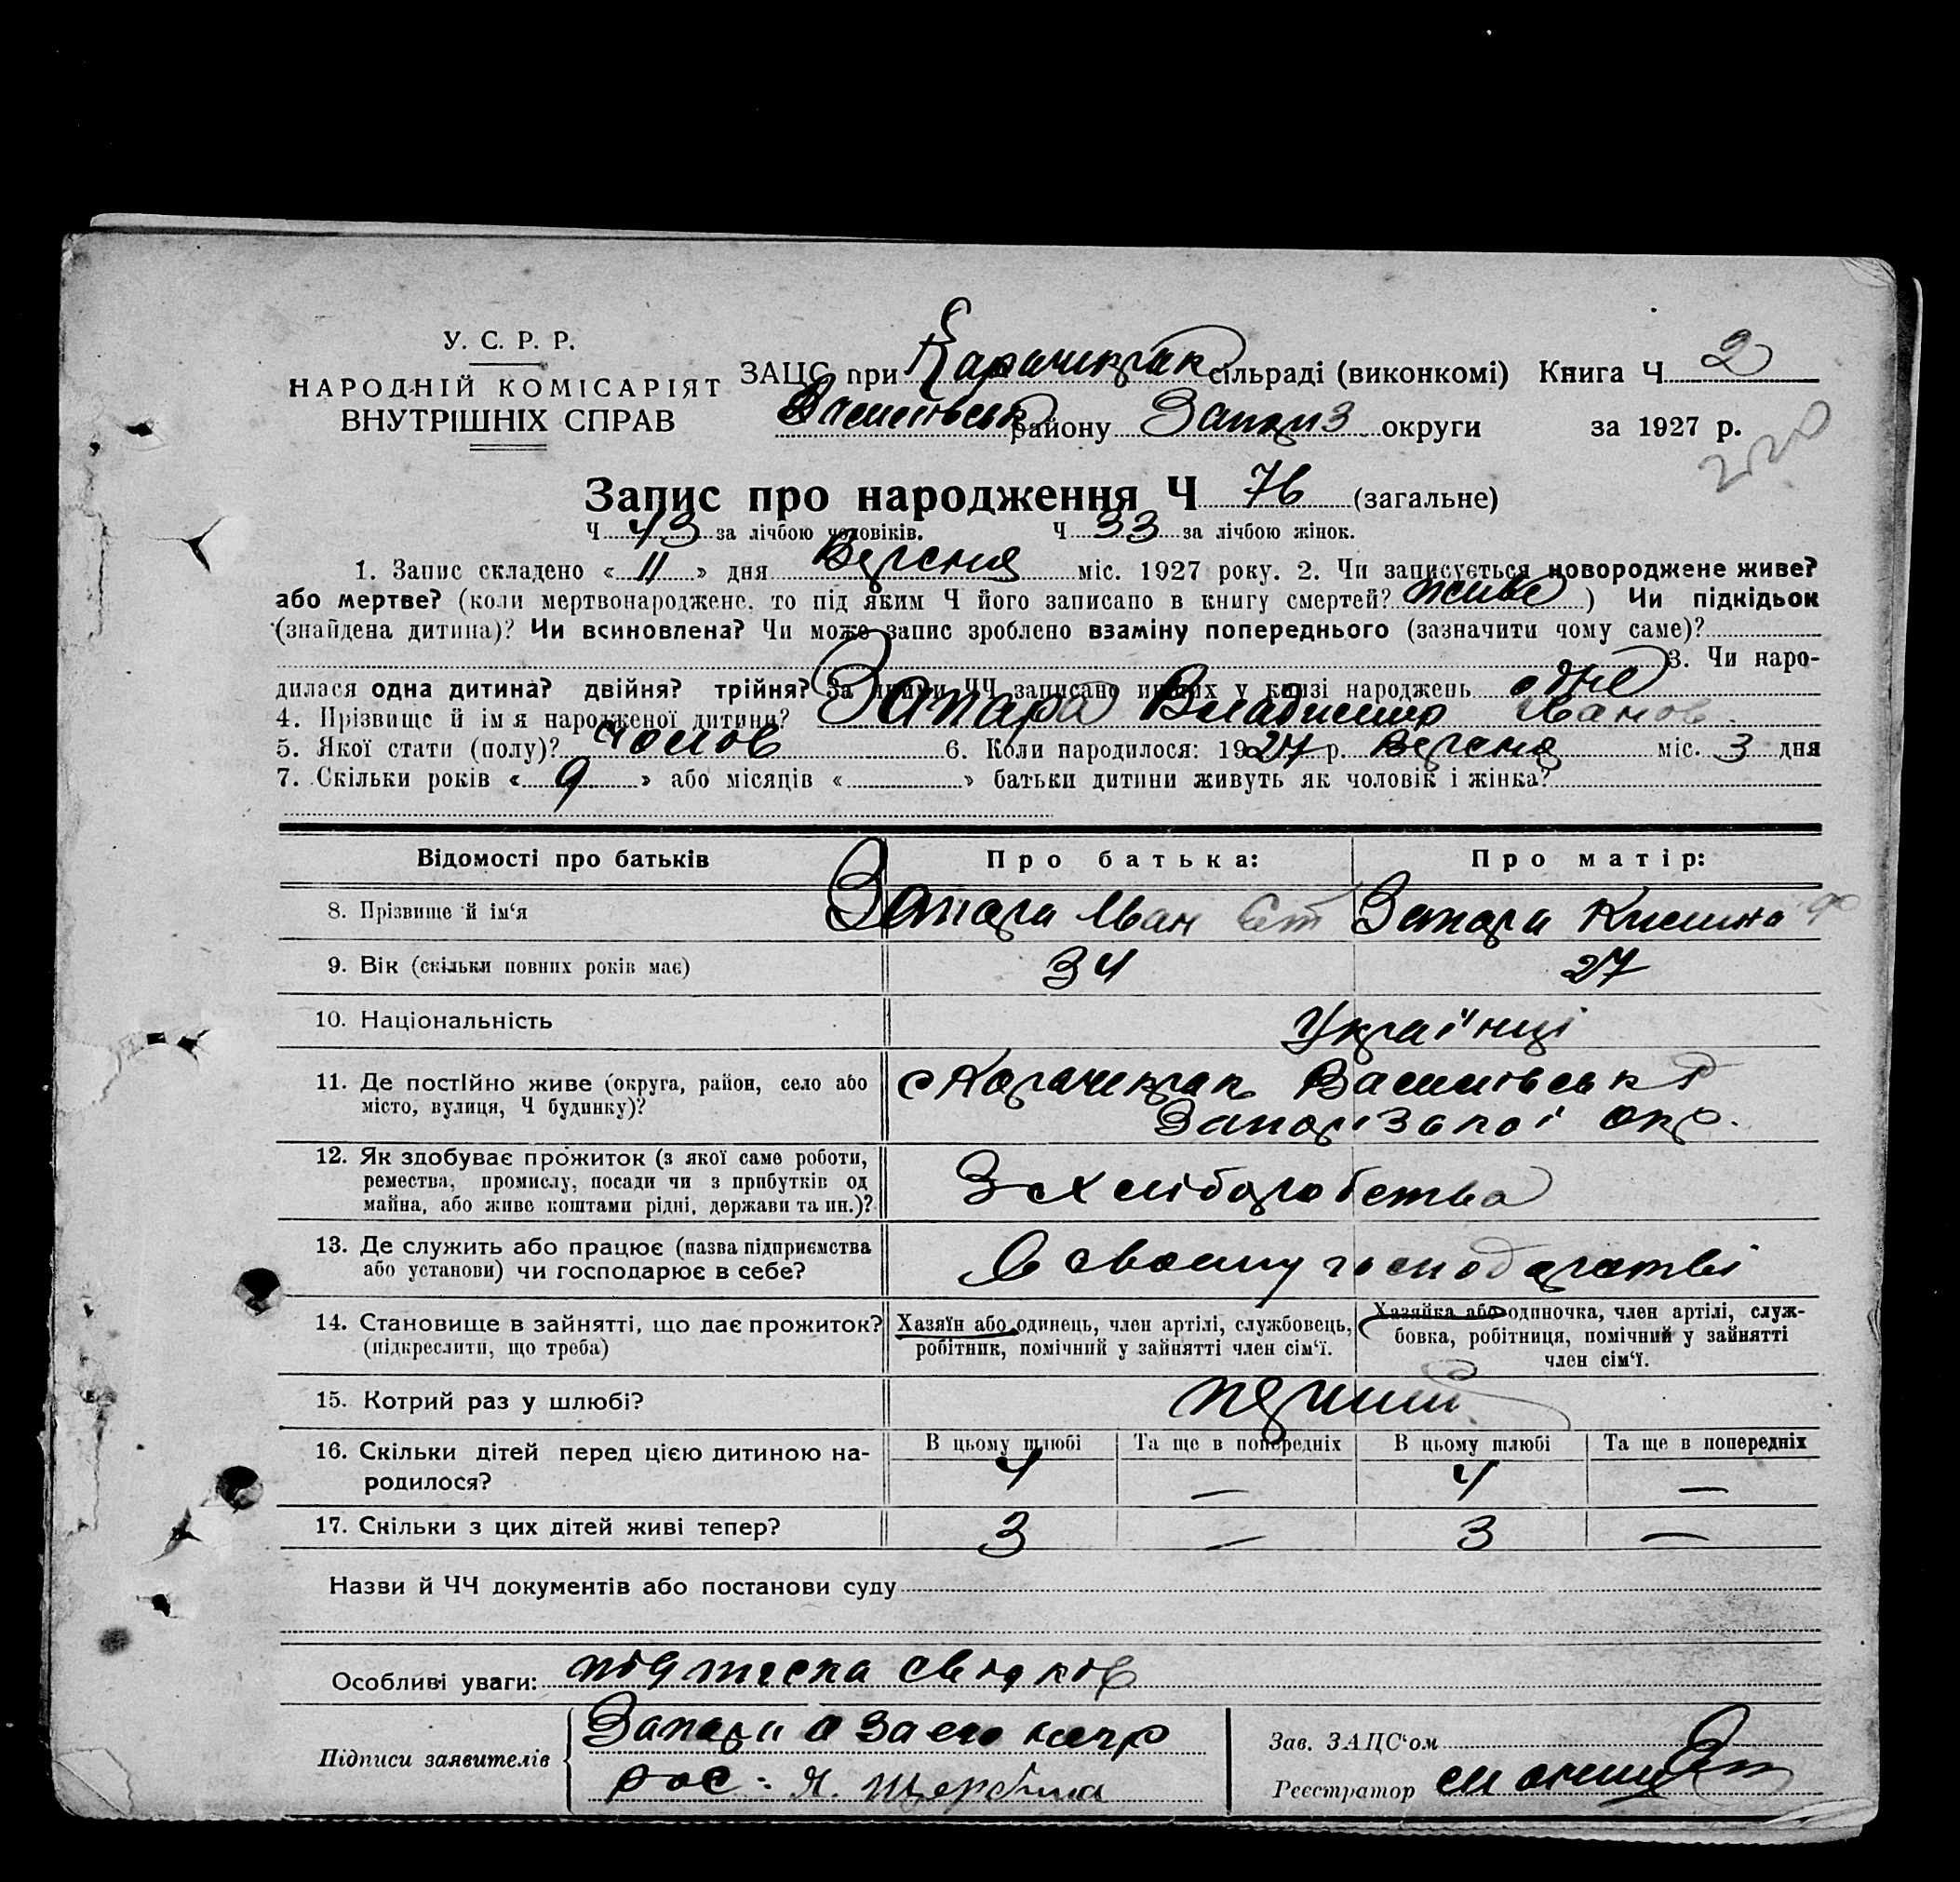 У. С. Р. Р.
НАРОДНІЙ КОМІСАРІЯТ
ВНУТРІШНІХ СПРАВ
ЗАЦС при Карачикрак сільраді (виконкомі) Книга Ч 2
Василівськ району Запоріз округи за 1927 р.
220
Запис про народження Ч 76 (загальне)
Ч 43 за лічбою чоловіків. Ч 33 за лічбою жінок.
1. Запис складено « 11 » дня Вересня міс. 1927 року. 2. Чи записується новороджене живе?
або мертве? (коли мертвонароджене, то під яким Ч його записано в книгу смертей? живе ) Чи підкідьок
(знайдена дитина)? Чи всиновлена? Чи може запис зроблено взаміну попереднього (зазначити чому саме)?
3. Чи наро-
дилася одна дитина? двійня? трійня? За якими ЧЧ записано инших у книзі народжень одне
4. Прізвище й ім'я народженої дитини? Запара Владимир Иванов
5. Якої стати (полу)? чолов 6. Коли народилося: 1927 р. Вересня міс. 3 дня
7. Скільки років « 9 » або місяців « » батьки дитини живуть як чоловік і жінка?
Відомості про батьків Про батька: Про матір:
8. Прізвище й ім'я Запара Иван Запара
9. Вік (скільки повних років має) 34 27
10. Національність Українці
11. Де постійно живе (округа, район, село або
місто, вулиця, Ч будинку)? с Карачикрак Василівськ р
Запорізької окр.
12. Як здобуває прожиток (з якої саме роботи,
ремества, промислу, посади чи з прибутків од
майна, або живе коштами рідні, держави та ин.)? З хліборобства
13. Де служить або працює (назва підприємства
або установи) чи господарює в себе? В своему господарстві
14. Становище в зайнятті, що дає прожиток?
(підкреслити, що треба)
Хазяїн або одинець, член артілі, службовець,
робітник, помічний у зайнятті член сім'ї.
Хазяйка або одиночка, член артілі, служ-
бовка, робітниця, помічний у зайнятті
член сім'ї.
15. Котрий раз у шлюбі? перший
16. Скільки дітей перед цією дитиною на-
родилося?
В цьому шлюбі Та ще в попередніх В цьому шлюбі Та ще в попередніх
4 — 4 —
17. Скільки з цих дітей живі тепер? 3 — 3 —
Назви й ЧЧ документів або постанови суду
Особливі уваги: свідків
Підписи заявителів Запара а за его негр
рос: Я. Щербина
Зав. ЗАЦС'ом
Реєстратор